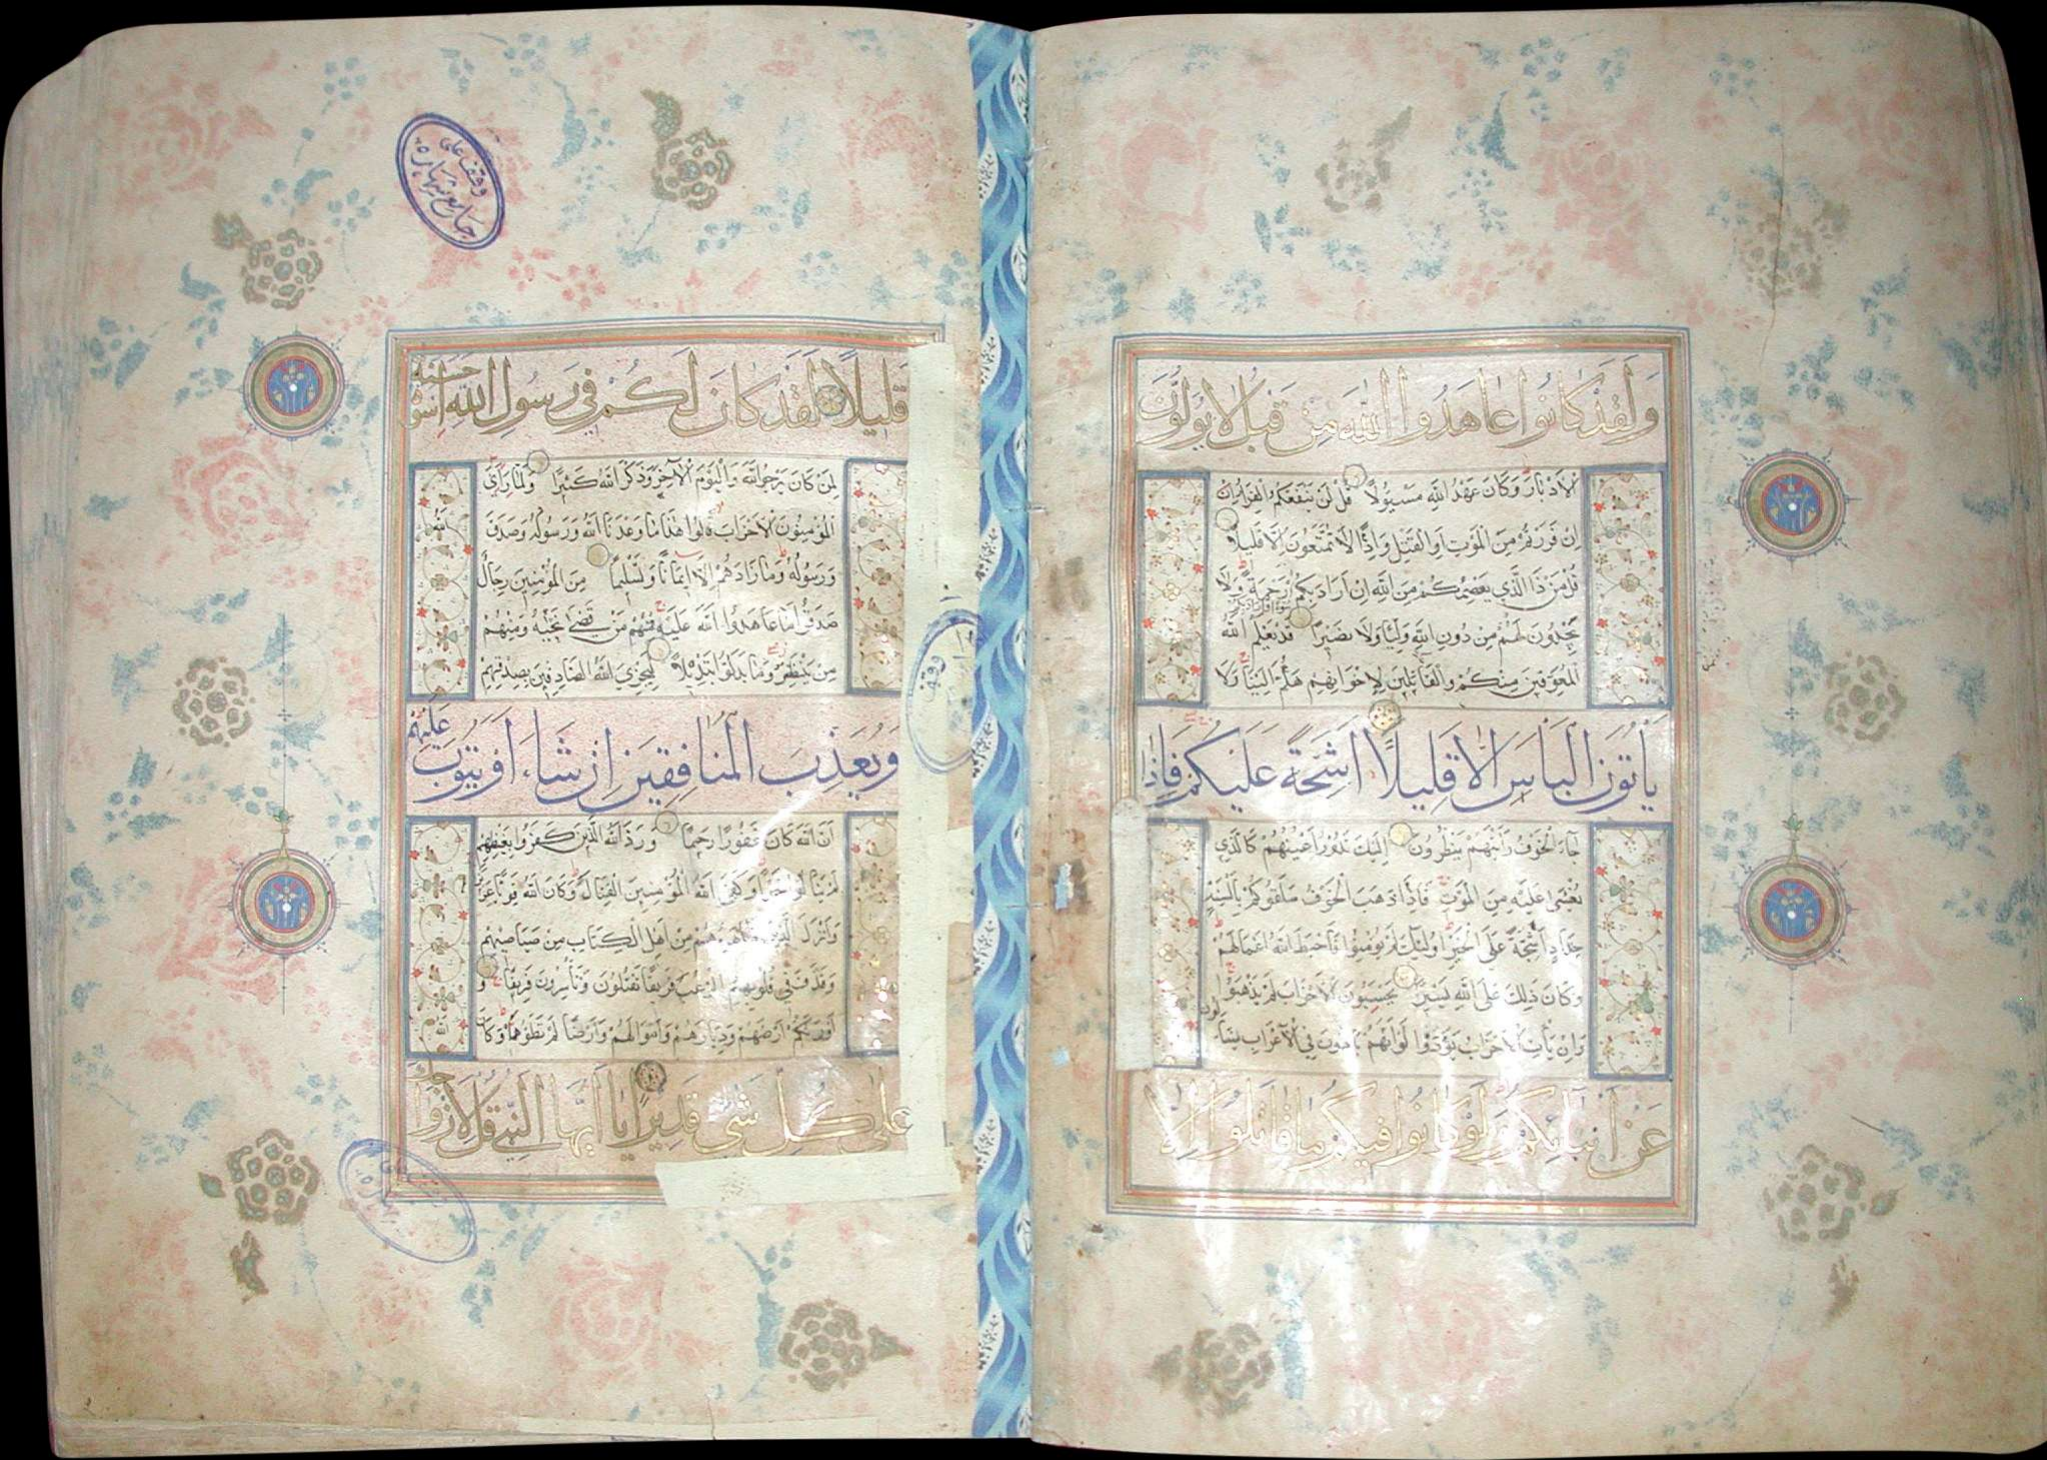 وَلَقَدْ كَانُوا عَاهَدُوا اللَّهَ مِنْ قَبْلُ لَا يُوَلُّونَ
الْأَدْبَارَ وَكَانَ عَهْدُ اللَّهِ مَسْئُولًا قُلْ لَنْ يَنْفَعَكُمُ الْفِرَارُ إِنْ
إِنْ فَرَرْتُمْ مِنَ الْمَوْتِ أَوِ الْقَتْلِ وَإِذًا لَا تُمَتَّعُونَ إِلَّا قَلِيلًا
قُلْ مَنْ ذَا الَّذِي يَعْصِمُكُمْ مِنَ اللَّهِ إِنْ أَرَادَ بِكُمْ رَحْمَةً وَلَا
يَجِدُونَ لَهُمْ مِنْ دُونِ اللَّهِ وَلِيًّا وَلَا نَصِيرًا قَدْ يَعْلَمُ اللَّهُ
الْمُعَوِّقِينَ مِنْكُمْ وَالْقَائِلِينَ لِإِخْوَانِهِمْ هَلُمَّ إِلَيْنَا وَلَا
يَأْتُونَ الْبَأْسَ إِلَّا قَلِيلًا أَشِحَّةً عَلَيْكُمْ فَإِذَا
جَاءَ الْخَوْفُ رَأَيْتَهُمْ يَنْظُرُونَ إِلَيْكَ تَدُورُ أَعْيُنُهُمْ كَالَّذِي
يُغْشَى عَلَيْهِ مِنَ الْمَوْتِ فَإِذَا ذَهَبَ الْخَوْفُ سَلَقُوكُمْ بِأَلْسِنَةٍ
حِدَادٍ أَشِحَّةً عَلَى الْخَيْرِ أُولَئِكَ لَمْ يُؤْمِنُوا فَأَحْبَطَ اللَّهُ أَعْمَالَهُمْ
وَكَانَ ذَلِكَ عَلَى اللَّهِ يَسِيرًا يَحْسَبُونَ الْأَحْزَابَ لَمْ يَذْهَبُوا
وَإِنْ يَأْتِ الْأَحْزَابُ يَوَدُّوا لَوْ أَنَّهُمْ بَادُونَ فِي الْأَعْرَابِ يَسْأَلُونَ
عَنْ أَنْبَائِكُمْ وَلَوْ كَانُوا فِيكُمْ مَا قَاتَلُوا إِلَّا
قَلِيلًا لَقَدْ كَانَ لَكُمْ فِي رَسُولِ اللَّهِ أُسْوَةٌ حَسَنَةٌ
لِمَنْ كَانَ يَرْجُو اللَّهَ وَالْيَوْمَ الْآخِرَ وَذَكَرَ اللَّهَ كَثِيرًا وَلَمَّا رَأَى
الْمُؤْمِنُونَ الْأَحْزَابَ قَالُوا هَذَا مَا وَعَدَنَا اللَّهُ وَرَسُولُهُ وَصَدَقَ اللَّهُ
وَرَسُولُهُ وَمَا زَادَهُمْ إِلَّا إِيمَانًا وَتَسْلِيمًا مِنَ الْمُؤْمِنِينَ رِجَالٌ
صَدَقُوا مَا عَاهَدُوا اللَّهَ عَلَيْهِ فَمِنْهُمْ مَنْ قَضَى نَحْبَهُ وَمِنْهُمْ
مَنْ يَنْتَظِرُ وَمَا بَدَّلُوا تَبْدِيلًا لِيَجْزِيَ اللَّهُ الصَّادِقِينَ بِصِدْقِهِمْ
وَيُعَذِّبَ الْمُنَافِقِينَ إِنْ شَاءَ أَوْ يَتُوبَ عَلَيْهِمْ
إِنَّ اللَّهَ كَانَ غَفُورًا رَحِيمًا وَرَدَّ اللَّهُ الَّذِينَ كَفَرُوا بِغَيْظِهِمْ
لَمْ يَنَالُوا خَيْرًا وَكَفَى اللَّهُ الْمُؤْمِنِينَ الْقِتَالَ وَكَانَ اللَّهُ قَوِيًّا عَزِيزًا
وَأَنْزَلَ الَّذِينَ ظَاهَرُوهُمْ مِنْ أَهْلِ الْكِتَابِ مِنْ صَيَاصِيهِمْ
وَقَذَفَ فِي قُلُوبِهِمُ الرُّعْبَ فَرِيقًا تَقْتُلُونَ وَتَأْسِرُونَ فَرِيقًا وَ
أَوْرَثَكُمْ أَرْضَهُمْ وَدِيَارَهُمْ وَأَمْوَالَهُمْ وَأَرْضًا لَمْ تَطَئُوهَا وَكَانَ اللَّهُ
عَلَى كُلِّ شَيْءٍ قَدِيرًا يَا أَيُّهَا النَّبِيُّ قُلْ لِأَزْوَاجِكَ
وقف على
جامع شهاره
وقف